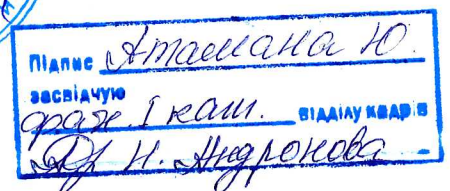 Підпис Атамана Ю.
засвідчую
фах. І кат. відділу кадрів
Н. Андронова